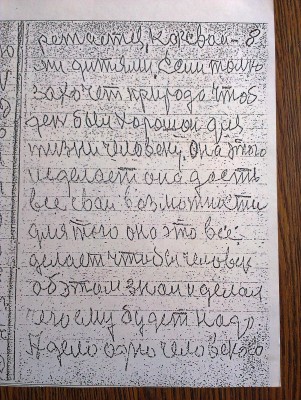 ретается, к своем- 8
ми дитями, Если только
захочет природа чтоб
ден был хорошой для
жизни человеку, она этого
и сделает она дасть
все свои возможности
для того оно это все
делает чтобы человек
об этом знал и делал
чего ему будет надо
А дело одно человеково